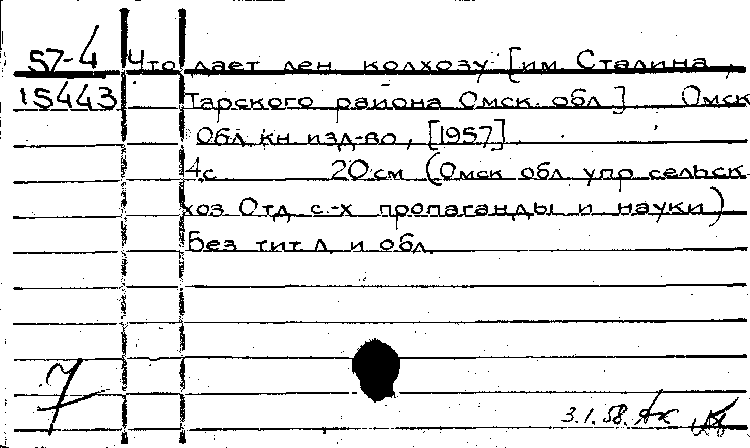 57-4 Что дает лен колхозу [им Сталина,
15443 Тарского района Омск. обл.] Омск
Обл. кн. изд-во, [1957]
4 с 20 см (Омск обл упр сельск
хоз Отд с.-х пропаганды и науки)
Без тит. л. и обл.
7
3.1.58.